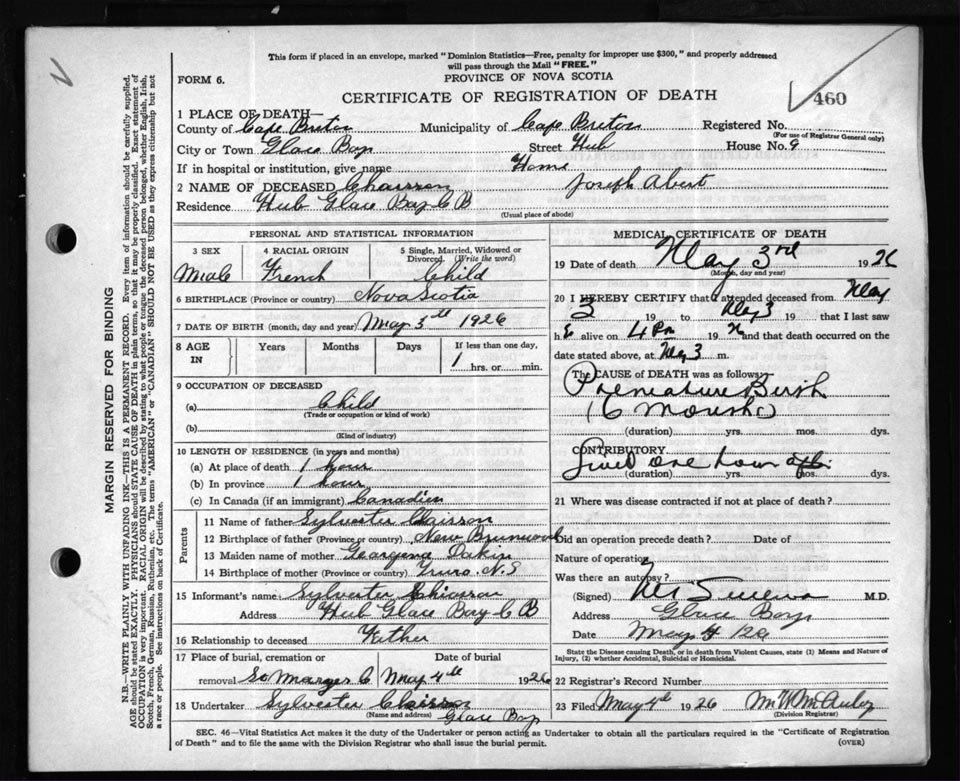 This form if placed in an envelope, marked "Dominion Statistics—Free, penalty for improper use $300," and properly addressed
will pass through the Mail "FREE."
FORM 6.
PROVINCE OF NOVA SCOTIA
CERTIFICATE OF REGISTRATION OF DEATH
460
1 PLACE OF DEATH—
County of Cape Breton Municipality of Cape Breton Registered No.
(For use of Registrar General only)
City or Town Glace Bay Street Hub House No. 9
If in hospital or institution, give name Home
2 NAME OF DECEASED Chaisson Joseph Abert
Residence Hub Glace Bay C B
(Usual place of abode)
PERSONAL AND STATISTICAL INFORMATION
3 SEX 4 RACIAL ORIGIN 5 Single, Married, Widowed or Divorced. (Write the word)
Male French Child
6 BIRTHPLACE (Province or country) Nova Scotia
7 DATE OF BIRTH (month, day and year) May 3 1926
8 AGE IN Years Months Days If less than one day,
1 hrs. or min.
9 OCCUPATION OF DECEASED
(a) Child
(Trade or occupation or kind of work)
(b)
(Kind of industry)
10 LENGTH OF RESIDENCE (in years and months)
(a) At place of death 1 hour
(b) In province 1 hour
(c) In Canada (if an immigrant) Canadien
Parents
11 Name of father Sylvester Chaisson
12 Birthplace of father (Province or country) New Brunswick
13 Maiden name of mother Georgena Dakin
14 Birthplace of mother (Province or country) Truro. N.S
15 Informant's name Sylvester Chiasson
Address Hub Glace Bay C B
16 Relationship to deceased Father
17 Place of burial, cremation or Date of burial
removal May 4th 1926
18 Undertaker Sylvester Chaisson
(Name and address) Glace Bay
MEDICAL CERTIFICATE OF DEATH
19 Date of death May 3rd 1926
(Month, day and year)
20 I HEREBY CERTIFY that I attended deceased from May
3 19 to May 3 19 that I last saw
h E alive on 4 Pm 1926 and that death occurred on the
date stated above, at May 3 m.
The CAUSE of DEATH was as follows:
Premature Birth
(6 Months)
(duration) yrs. mos. dys.
CONTRIBUTORY
Lived one hour
(duration) yrs. mos. dys.
21 Where was disease contracted if not at place of death?
Did an operation precede death? Date of
Nature of operation
Was there an autopsy?
(Signed) M.D.
Address Glace Bay
Date May 4
State the Disease causing Death, or in death from Violent Causes, state (1) Means and Nature of
Injury, (2) whether Accidental, Suicidal or Homicidal.
22 Registrar's Record Number
23 Filed May 4th 1926
(Division Registrar)
SEC. 46—Vital Statistics Act makes it the duty of the Undertaker or person acting as Undertaker to obtain all the particulars required in the "Certificate of Registration
of Death" and to file the same with the Division Registrar who shall issue the burial permit. (OVER)
MARGIN RESERVED FOR BINDING
N.B.—WRITE PLAINLY WITH UNFADING INK—THIS IS A PERMANENT RECORD. Every item of information should be carefully supplied.
AGE should be stated EXACTLY. PHYSICIANS should STATE CAUSE OF DEATH in plain terms, so that it may be properly classified. Exact statement of
OCCUPATION is very important. RACIAL ORIGIN will be described by stating to what people or tongue the deceased person belonged, whether English, Irish,
Scotch, French, German, Russian, Ruthenian, etc. The terms "AMERICAN" or "CANADIAN" SHOULD NOT BE USED as they express citizenship but not
a race or people. See instructions on back of Certificate.